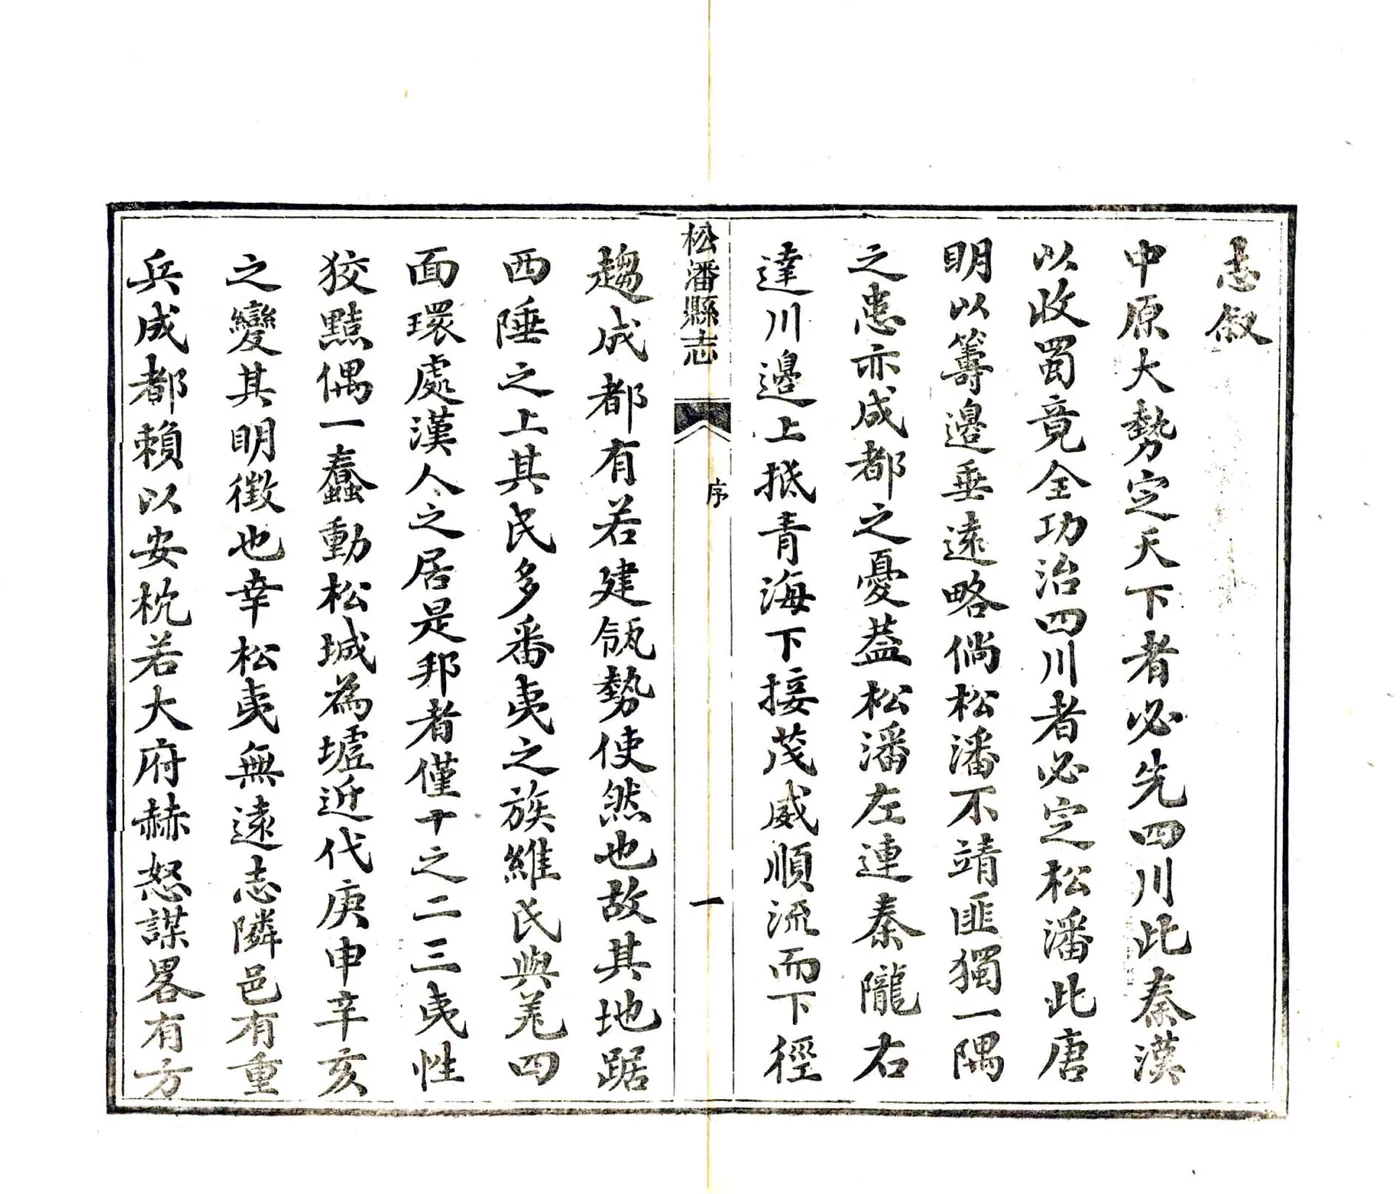 志叙
中原大勢定天下者必先四川此秦漢
以收蜀竟全功治四川者必定松潘此唐
明以籌邊垂遠略倘松潘不靖匪獨一隅
之患亦成都之憂葢松潘左連秦隴右
達川邊上抵青海下接茂威順流而下徑
松潘縣志
序
一
趨成都有若建瓴勢使然也故其地踞
西陲之上其民多番夷之族維氐與羌四
面環處漢人之居是邦者僅十之二三夷性
狡黠偶一蠢動松城為墟近代庚申辛亥
之變其明徵也幸松夷無遠志隣邑有重
兵成都賴以安枕若大府赫怒謀畧有方